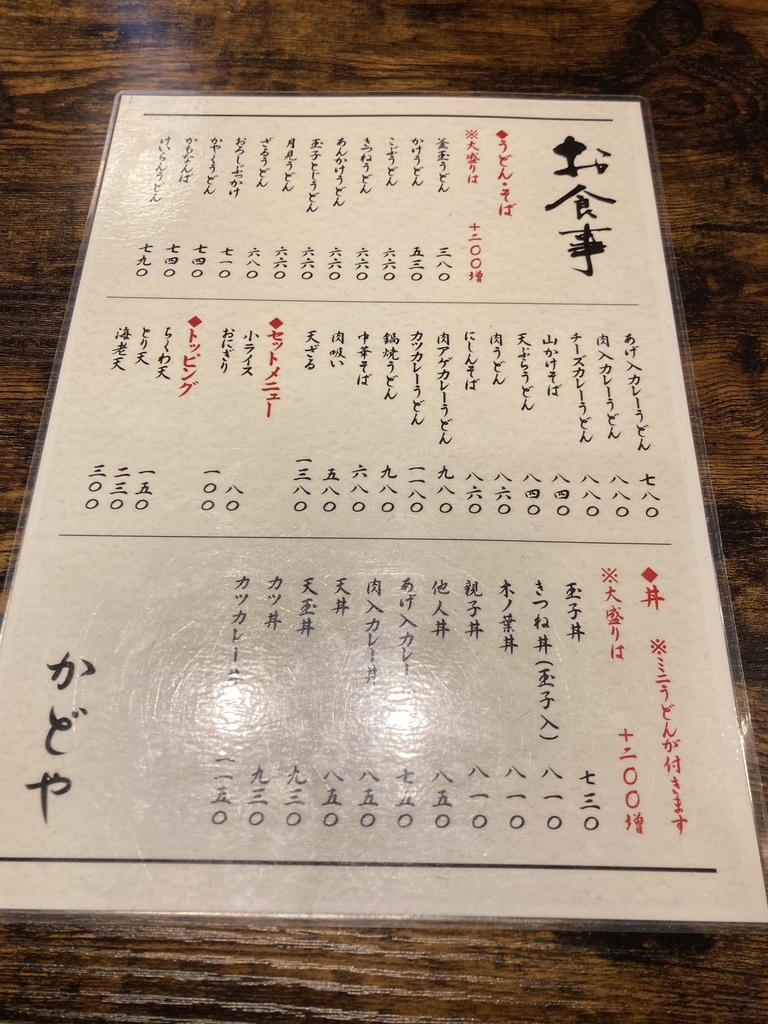 お食事
◆うどん・そば
※大盛りは 十二〇〇増
釜玉うどん 三八〇
かけうどん 五三〇
こぶうどん 六六〇
きつねうどん 六六〇
あんかけうどん 六六〇
玉子とじうどん 六六〇
月見うどん 六六〇
ざるうどん 六八〇
おろしぶっかけ 七一〇
かやくうどん 七四〇
かもなんば 七四〇
けいらんうどん 七九〇
あげ入カレーうどん 七八〇
肉入カレーうどん 八八〇
チーズカレーうどん 八八〇
山かけそば 八四〇
天ぷらうどん 八四〇
肉うどん 八六〇
にしんそば 八六〇
肉アゲカレーうどん 九八〇
カツカレーうどん 一一八〇
鍋焼うどん 九八〇
中華そば 六八〇
肉吸い 五八〇
天ざる 一三八〇
◆セットメニュー
小ライス 八〇
おにぎり 一〇〇
◆トッピング
ちくわ天 一五〇
とり天 二三〇
海老天 三〇〇
◆丼 ※ミニうどんが付きます
※大盛りは 十二〇〇増
玉子丼 七三〇
きつね丼(玉子入) 八一〇
木ノ葉丼 八一〇
親子丼 八一〇
他人丼 八五〇
あげ入カレー 七五〇
肉入カレー丼 八五〇
天丼 八五〇
天玉丼 九三〇
カツ丼 九三〇
カツカレー丼 一一五〇
かどや